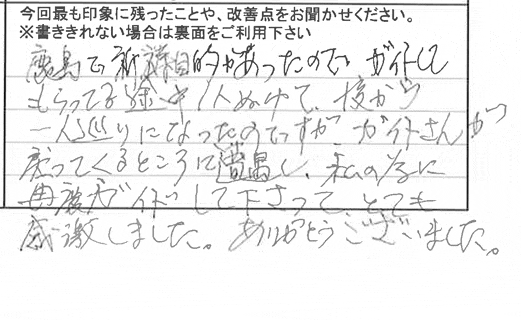 今回最も印象に残ったことや、改善点をお聞かせください。
※書ききれない場合は裏面をご利用下さい
鹿島で 目的があったので ガイドして
もらってる途中1人ぬけて、後から
一人巡りになったのですが ガイドさんが
戻ってくるところに遭遇し、私の為に
再度ガイドして下さって、とても
感激しました。ありがとうございました。